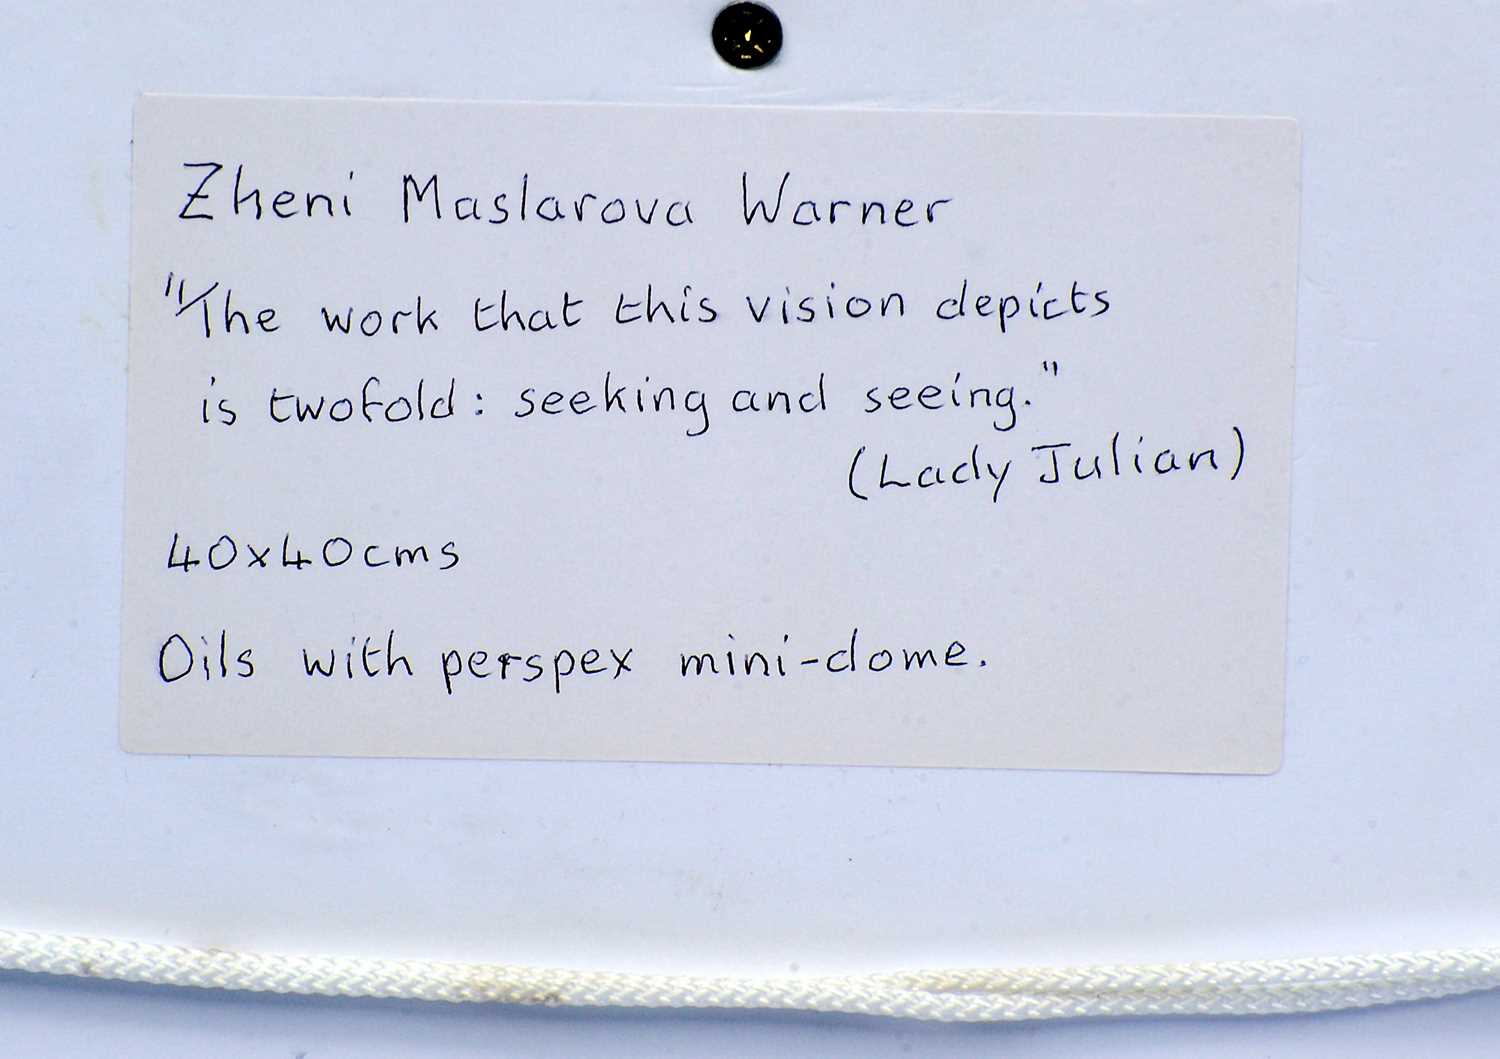 Zheni Maslarova Warner
"The work that this vision depicts
is twofold: seeking and seeing."
(Lady Julian)
40x40cms
Oils with perspex mini-dome.